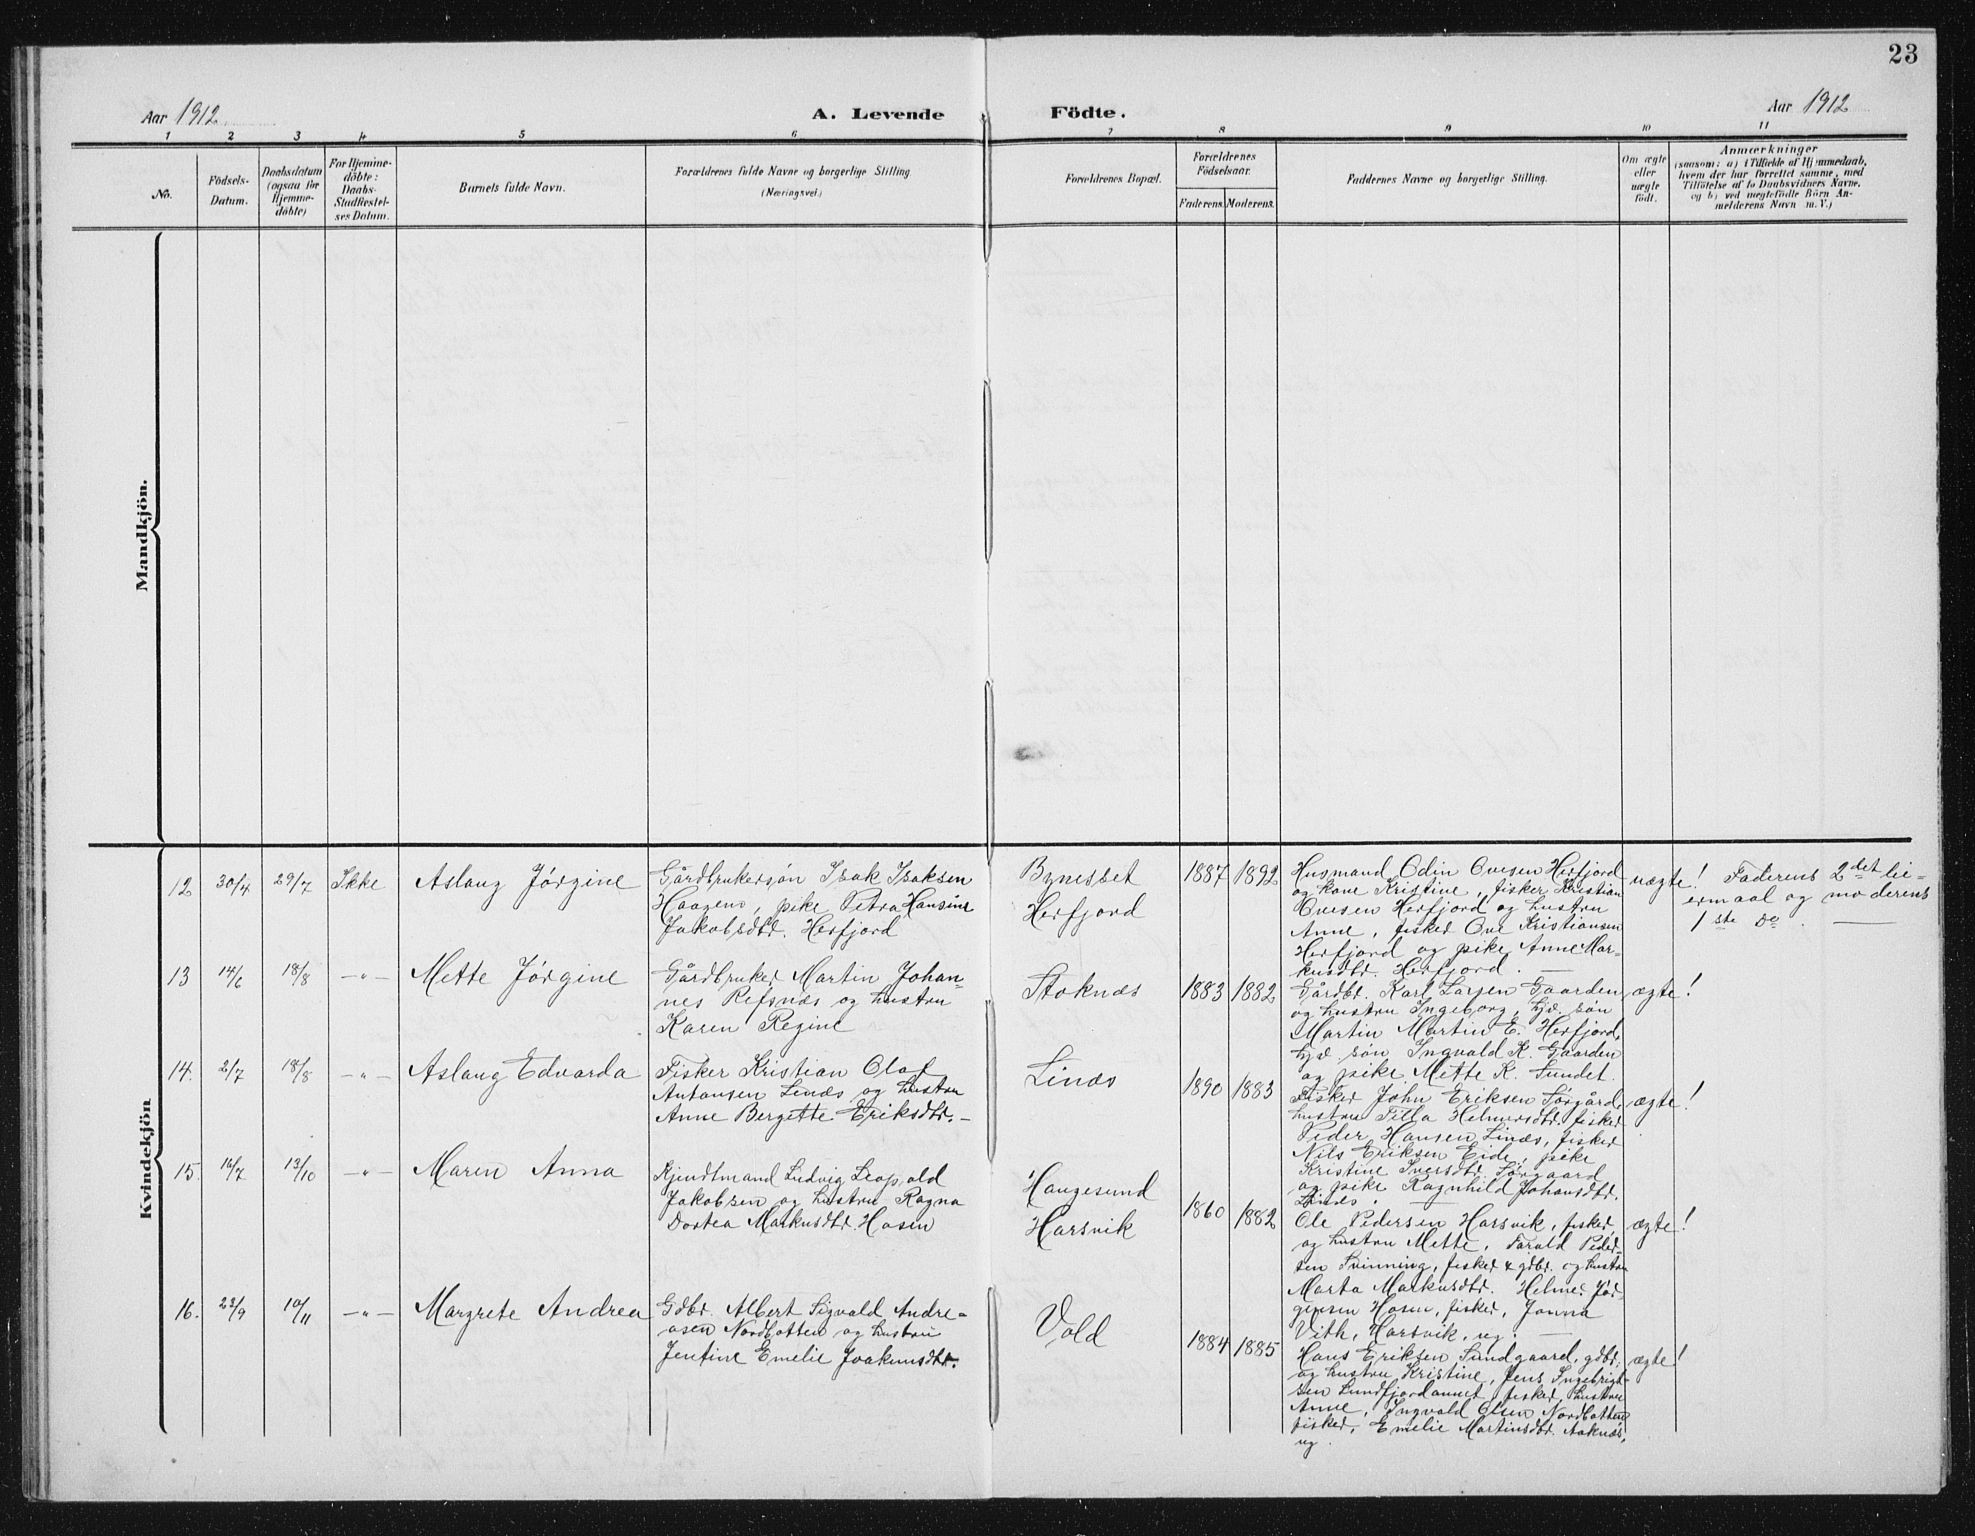 23
Aar 1912
A. Levende Födte.
Aar 1912
1 2 3 4 5 6 7 8 9 10 11
No.
Födsels-
Datum.
Daabsdatum
(ogsaa for
Hjemme-
döbte)
For Hjemme-
döbte:
Daabs-
Stadfæstel-
ses Datum.
Barnets fulde Navn.
Forældrenes fulde Navne og borgerlige Stilling
(Næringsvei.)
Forældrenes Bopæl.
Forældrenes
Födselsaar.
Faderens. Moderens.
Faddernes Navne og borgerlige Stilling.
Om ægte
eller
uægte
födt.
Anmærkninger
(saasom: a) i Tilfælde af Hjemmedaab,
hvem der har forrettet samme, med
Tilföielse af to Daabsvidners Navne,
og b) ved uægtefödte Börn An-
melderens Navn m. V.)
Mandkjön.
Kvindekjön
12 30/4 29/7 Ikke Aslaug Jörgine
Gårdbrukersøn Isak Isaksen
Haagens, pike Petra Hansine
Jakobsdtr. Herfjord
Bynesset
Herfjord
1887 1892
Husmand Odin Ovesen Herfjord
og kone Kristine, fisker Kristian
Ovesen Herfjord og hustru
Anne, fisker Ove Kristiansen
Herfjord og pike Anne Mar-
kusdtr. Herfjord. —
uægte! Faderens 2det lei-
ermaal og moderens
1ste Do. —
13 14/6 18/8 —"— Mette Jörgine
Gårdbruker Martin Johan-
nes Refsnæs og hustru
Karen Regine
Stoknæs
1883 1882
Gårdbr. Karl Larsen Gaarden
og hustru Ingeborg, gd. søn
Martin Martin E. Herfjord,
gd. søn Ingvald K. Gaarden
og pike Mette K. Sundet.
ægte!
14. 2/7 18/8 —"— Aslaug Edvarda
Fisker Kristian Olaf
Antonsen Linæs og hustru
Anne Bergette Eriksdtr. —
Linæs
1890 1883
Fisker John Eriksen Sørgård,
hustru Tilla Helmersdtr. fisker
Peder Hansen Linæs, fisker
Nils Eriksen Eide, pike
Kristine Iversdtr. Sørgaard
og pike Ragnhild Johansdtr.
Linæs. —
ægte!
15. 16/7 13/10 —"— Maren Anna
Kjendtmand Ludvig Leopold
Jakobsen og hustru Ragna
Dortea Markusdtr. Hosen
Haugesund
Harsvik
1860 1882
Ole Pedersen Harsvik, fisker
og hustru Mette, Farald Peder-
sen Svinning, fisker & gdbr. og hustru
Marta Markusdtr. Helmer Jør-
gensen Hosen, fisker, Janna
Vith, Harsvik, ug. —
ægte!
16. 23/9 10/11 —"— Margrete Andrea
Gdbr. Albert Sigvald Andre-
asen Nordbotten og hustru
Jentine Emelie Joakimsdtr.
Vold
1884 1885
Hans Eriksen Sundgaard, gdbr.
og hustru Kristine, Jens Ingebrigt-
sen Sundfjordannet, fisker, hustru
Anne, Ingvald Olsen Nordbotten
fisker, Emelie Martinsdtr. Aaknæs,
ug.
ægte!